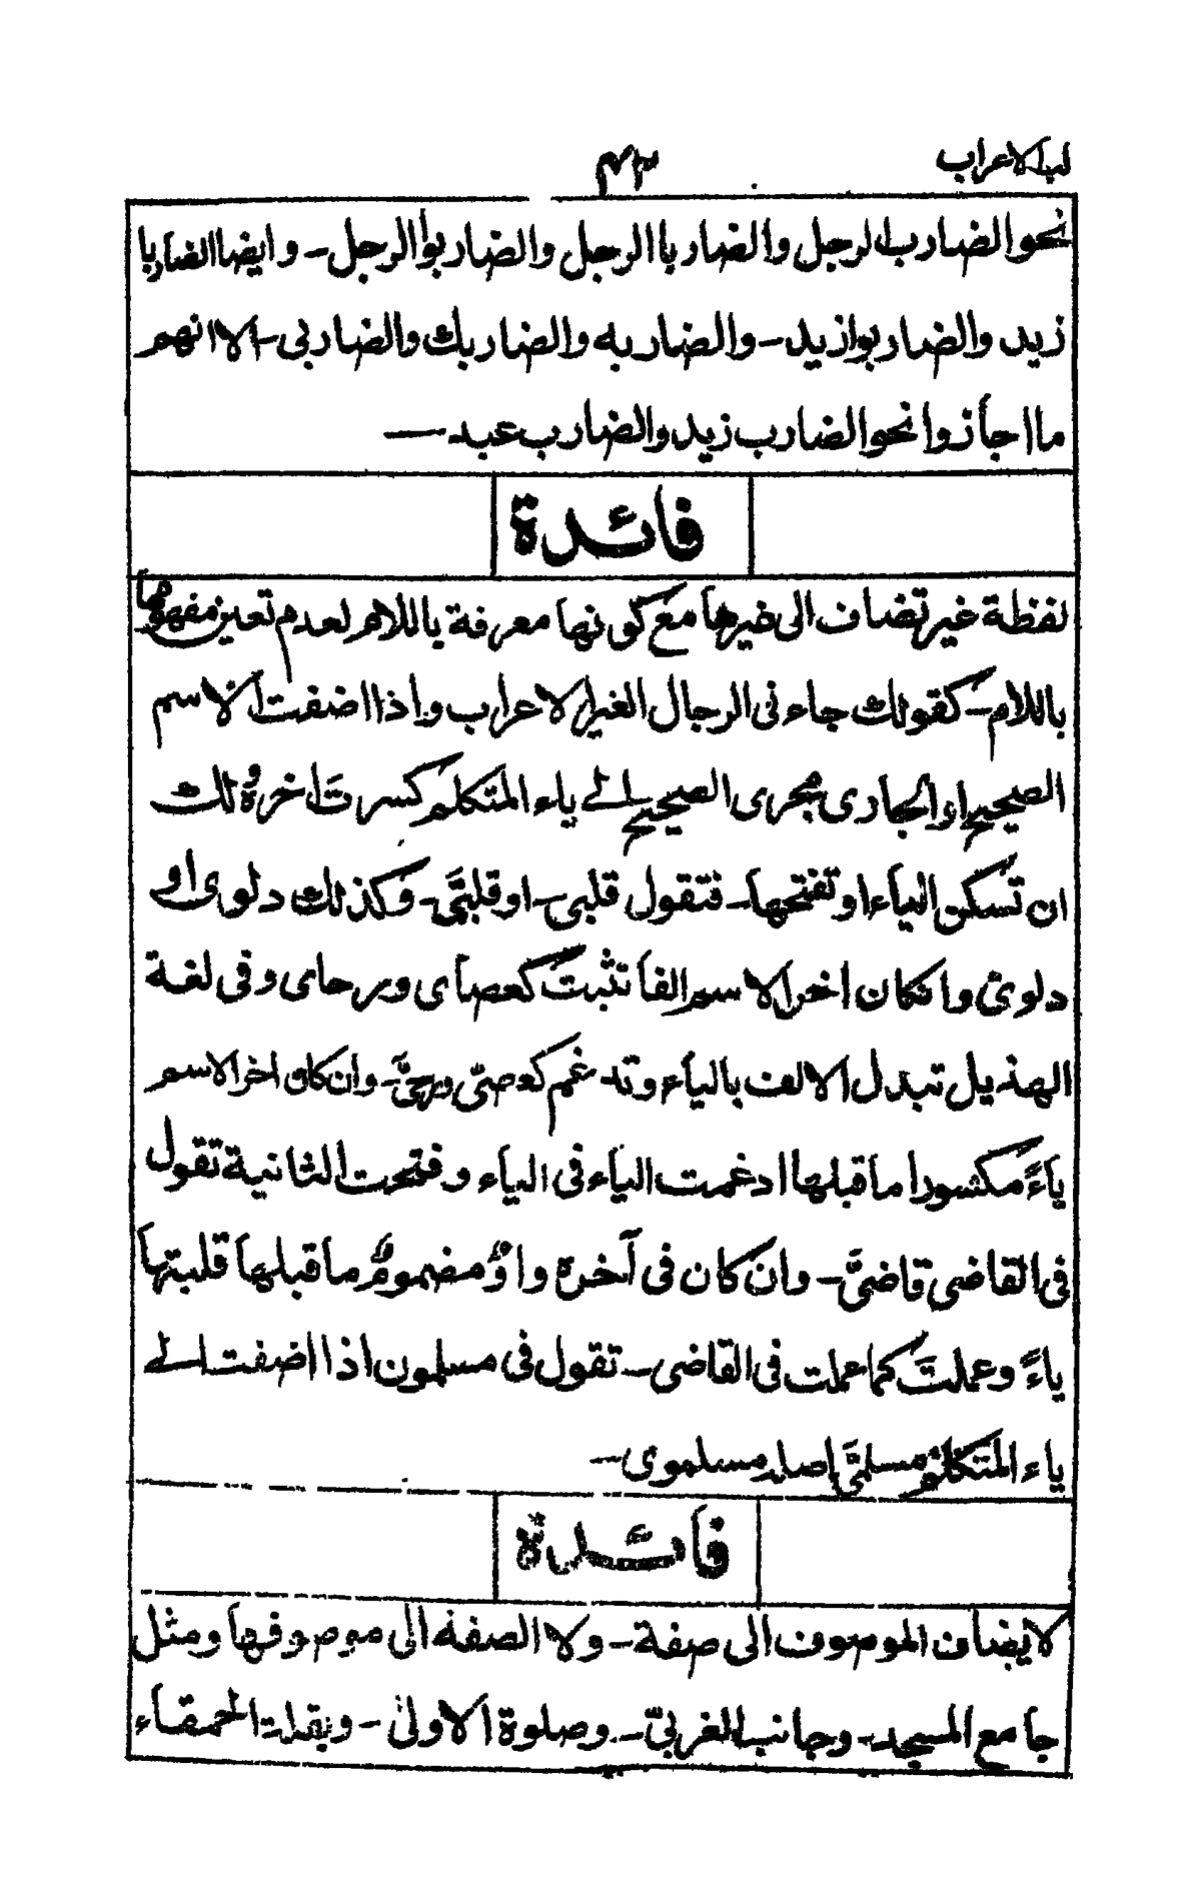 لب الاعراب
۴۳
نحو الضارب الرجل والضاربا الرجل والضاربوا الرجل - وايضا الضاربا
زيد والضاربوا زيد - والضاربه والضاربك والضاربى - الا انهم
ما اجازوا نحو الضارب زيد والضارب عبد —
فائدة
لفظة غير تضاف الى غيرها مع كونها معرفة باللام لعدم تعين مفهومها
باللام - كقولك جاءنى الرجال الغير الاعراب واذا اضفت الاسم
الصحيح او الجارى مجرى الصحيح الے ياء المتكلم كسرت اخرهٗ ولك
ان تسكن الياء او تفتحها - فتقول قلبى - او قلبىَ - وكذلك دلوى او
دلوىَ وانكان اخر الاسم الفا تثبت كعصاى ورحاى وفى لغة
الهذيل تبدل الالف بالياء وتدغم كعصىّ ورحىّ - وان كان اخر الاسم
ياءً مكسورا ما قبلها ادغمت الياء فى الياء وفتحت الثانية تقول
فى القاضى قاضىَّ - وان كان فى آخرہ واوٌ مضمومٌ ما قبلها قلبتها
ياءً وعملتَ كما عملت فى القاضى - تقول فى مسلمون اذا اضفت الے
ياء المتكلم مسلمىَّ اصله مسلموى -
فائدة
لا يضاف الموصوف الى صفة - ولا الصفة الى موصوفها ومثل
جامع المسجد - وجانب الغربىّ - وصلوة الاولىٰ - وبقلة الحمقاء